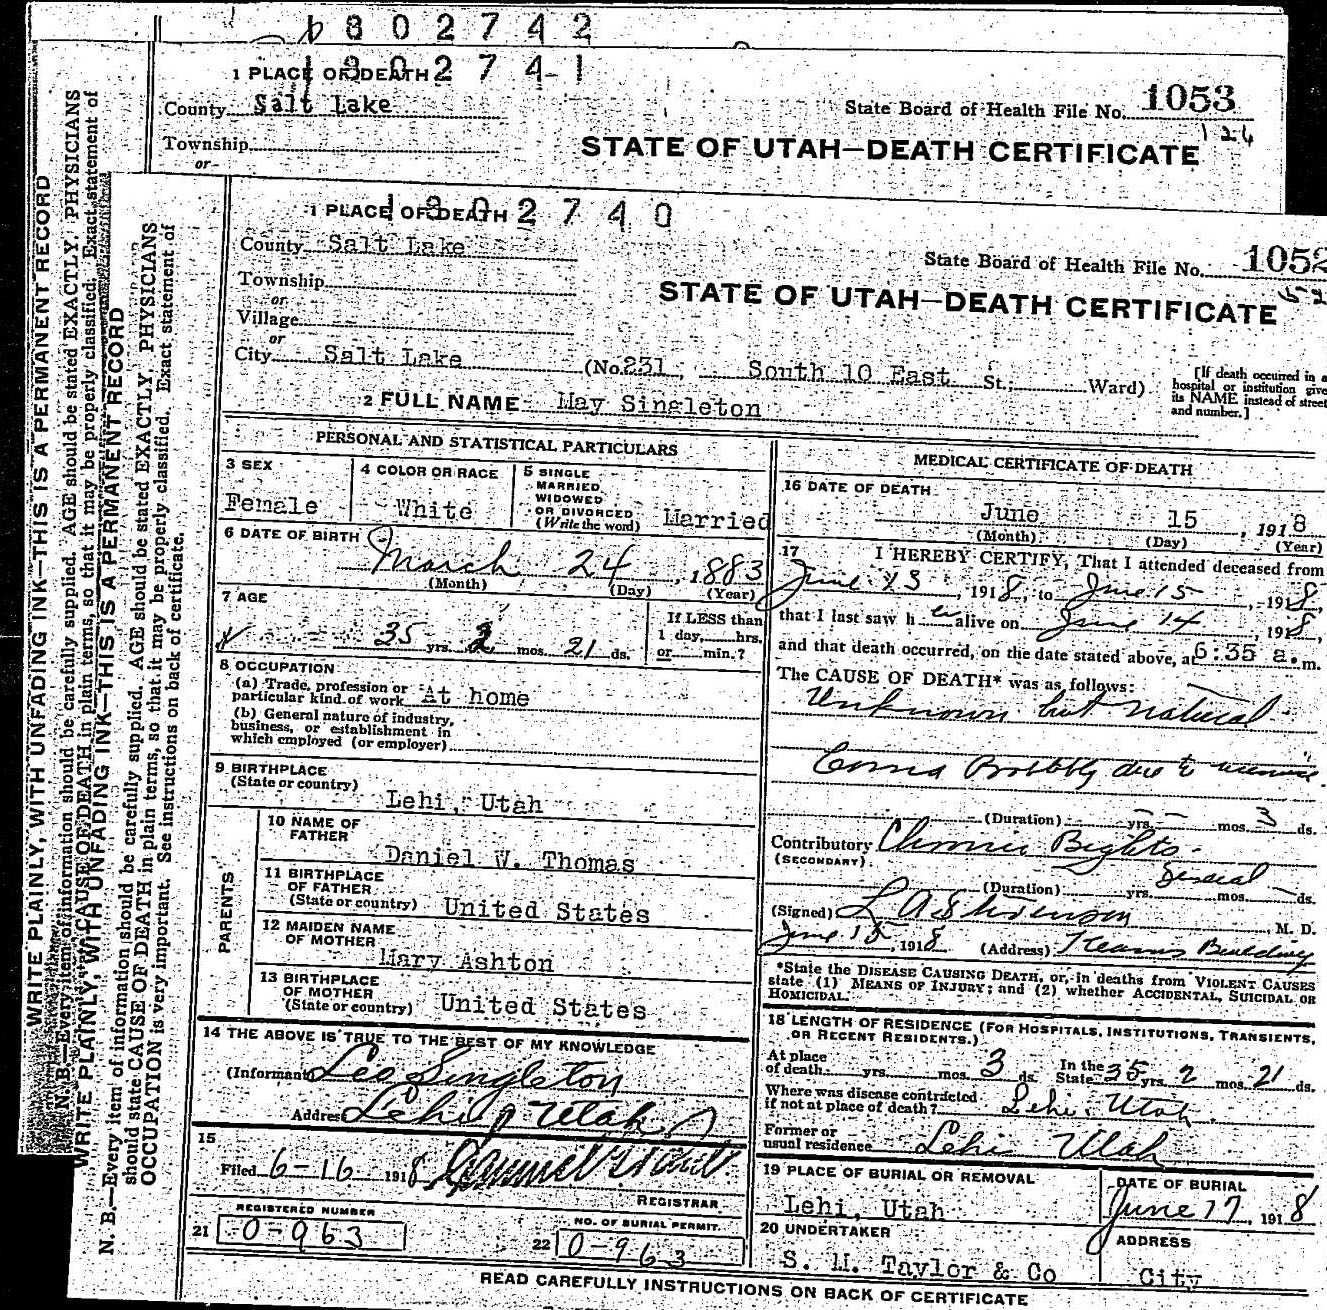 1802742
1802741
1 PLACE OF DEATH
County Salt Lake
State Board of Health File No. 1053
126
Township
or
STATE OF UTAH—DEATH CERTIFICATE
1802740
1 PLACE OF DEATH
County Salt Lake
State Board of Health File No. 1052
52
Township
or
Village
or
STATE OF UTAH—DEATH CERTIFICATE
City Salt Lake (No. 231 South 10 East St.; Ward)
[If death occurred in a
hospital or institution give
its NAME instead of street
and number.]
2 FULL NAME May Singleton
PERSONAL AND STATISTICAL PARTICULARS
3 SEX
Female
4 COLOR OR RACE
White
5 SINGLE
MARRIED
WIDOWED
OR DIVORCED
(Write the word) Married
6 DATE OF BIRTH
March 24, 1883
(Month) (Day) (Year)
7 AGE
35 yrs. 2 mos. 21 ds.
If LESS than
1 day, hrs.
or min.?
8 OCCUPATION
(a) Trade, profession or
particular kind of work At home
(b) General nature of industry,
business, or establishment in
which employed (or employer)
9 BIRTHPLACE
(State or country) Lehi, Utah
PARENTS
10 NAME OF
FATHER Daniel W. Thomas
11 BIRTHPLACE
OF FATHER
(State or country) United States
12 MAIDEN NAME
OF MOTHER Mary Ashton
13 BIRTHPLACE
OF MOTHER
(State or country) United States
14 THE ABOVE IS TRUE TO THE BEST OF MY KNOWLEDGE
(Informant) Leo Singleton
Address Lehi Utah
15
Filed 6-16 1918
REGISTRAR
REGISTERED NUMBER
21 0-963
NO. OF BURIAL PERMIT.
22 0-963
MEDICAL CERTIFICATE OF DEATH
16 DATE OF DEATH
June 15, 1918
(Month) (Day) (Year)
17 I HEREBY CERTIFY, That I attended deceased from
June 13, 1918, to June 15, 1918,
that I last saw her alive on June 14, 1918,
and that death occurred, on the date stated above, at 6:35 a.m.
The CAUSE OF DEATH* was as follows:
Unknown but natural
Coma Probbly due to
(Duration) yrs. mos. 3 ds.
Contributory Chronic Brights
(SECONDARY)
(Duration) several yrs. mos. ds.
(Signed) L A Stevenson, M. D.
June 15, 1918 (Address) Kearns Building
*State the DISEASE CAUSING DEATH, or, in deaths from VIOLENT CAUSES
state (1) MEANS OF INJURY; and (2) whether ACCIDENTAL, SUICIDAL OR
HOMICIDAL.
18 LENGTH OF RESIDENCE (FOR HOSPITALS, INSTITUTIONS, TRANSIENTS,
OR RECENT RESIDENTS.)
At place In the
of death yrs. mos. 3 ds. State 35 yrs. 2 mos. 21 ds.
Where was disease contracted
if not at place of death? Lehi, Utah.
Former or
usual residence Lehi Utah
19 PLACE OF BURIAL OR REMOVAL
Lehi, Utah
DATE OF BURIAL
June 17, 1918
20 UNDERTAKER
S. M. Taylor & Co
ADDRESS
City
READ CAREFULLY INSTRUCTIONS ON BACK OF CERTIFICATE
WRITE PLAINLY, WITH UNFADING INK—THIS IS A PERMANENT RECORD
N. B.—Every item of information should be carefully supplied. AGE should be stated EXACTLY. PHYSICIANS
CAUSE OF DEATH in plain terms, so that it may be properly classified. Exact statement of
WRITE PLAINLY, WITH UNFADING INK—THIS IS A PERMANENT RECORD
N. B.—Every item of information should be carefully supplied. AGE should be stated EXACTLY. PHYSICIANS
should state CAUSE OF DEATH in plain terms, so that it may be properly classified. Exact statement of
OCCUPATION is very important. See instructions on back of certificate.